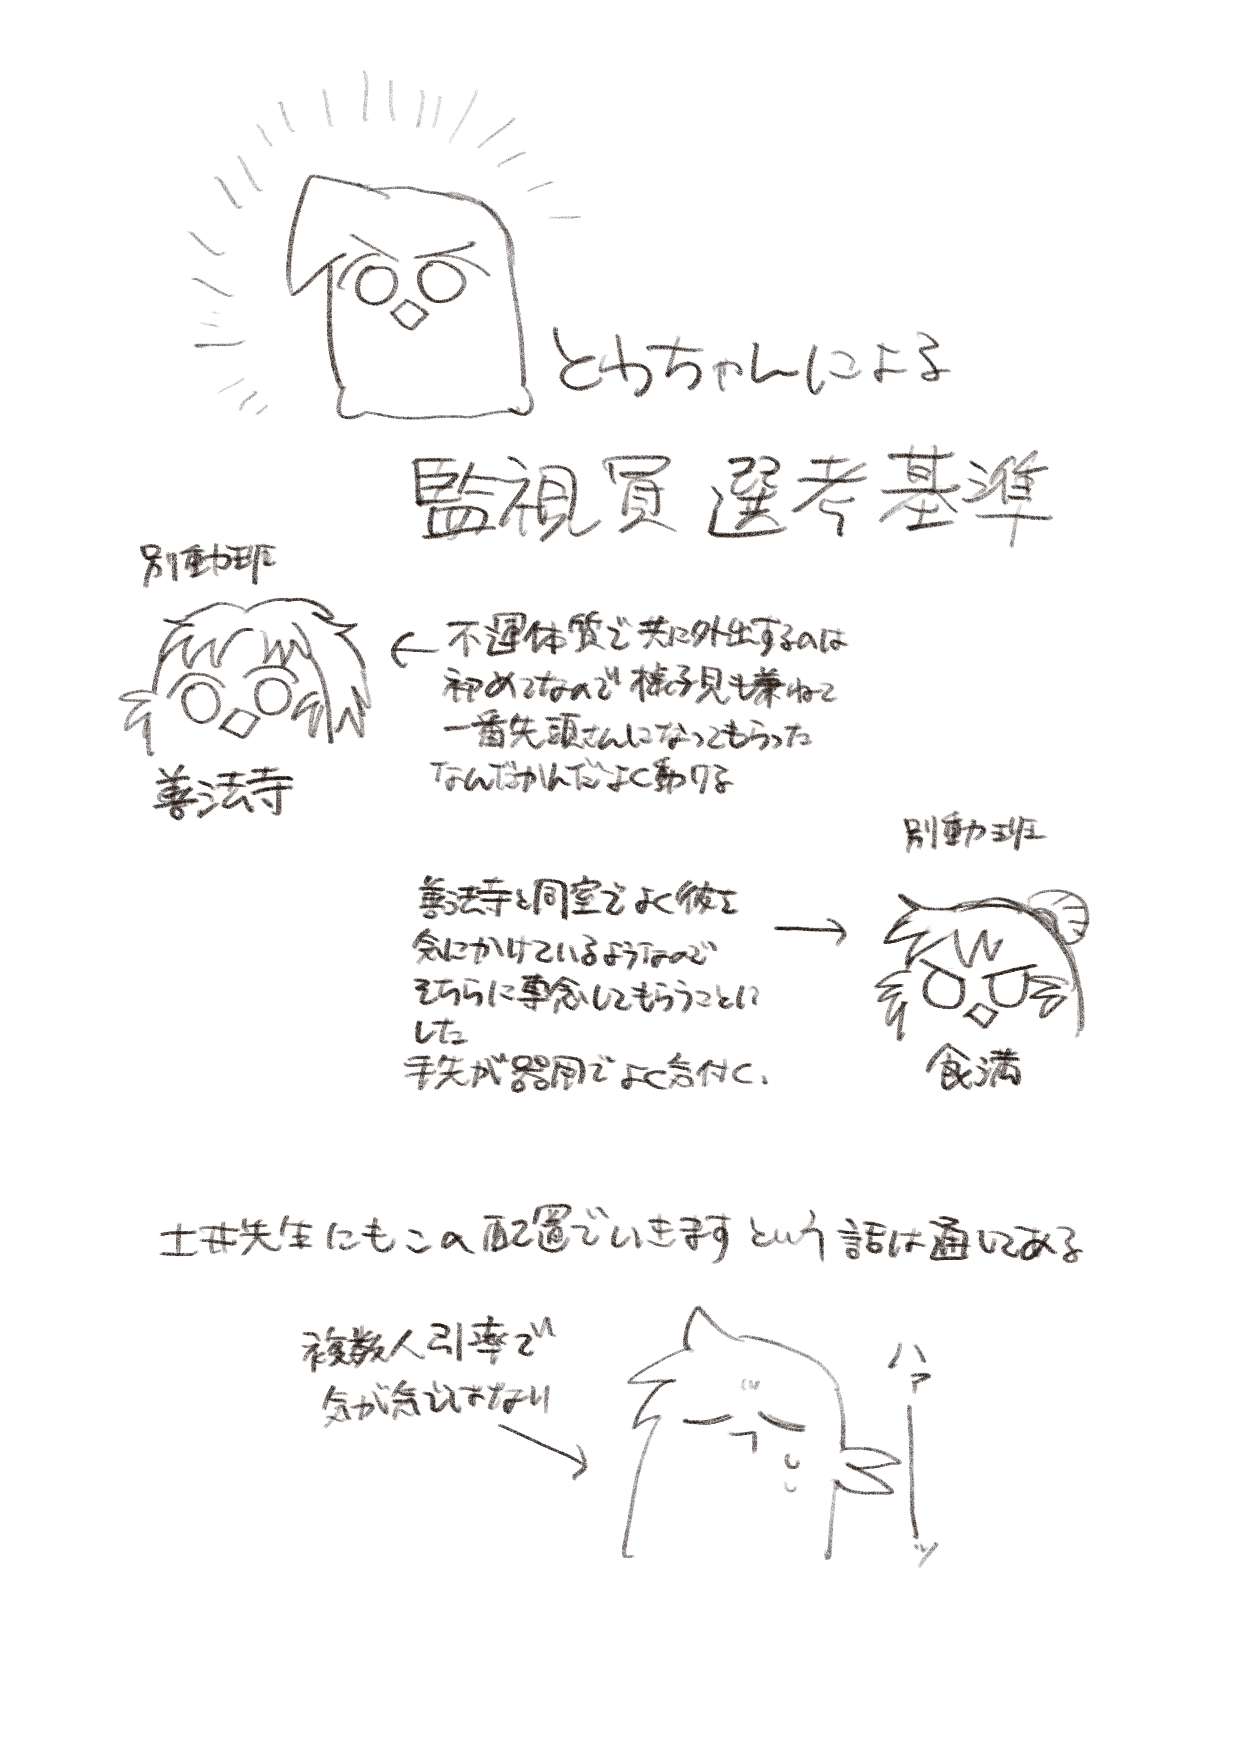 とわちゃんによる
監視員選考基準
別動班
善法寺
不運体質で共に外出するのは
初めてなので様子見も兼ねて
一番先頭さんになってもらった
なんだかんだよく動ける
別動班
善法寺と同室でよく彼を
気にかけているようなので
そちらに専念してもらうことに
した
手先が器用でよく気付く、
食満
土井先生にもこの配置でいきますという話は通してある
複数人引率で
気が気ではない
ハァーッ